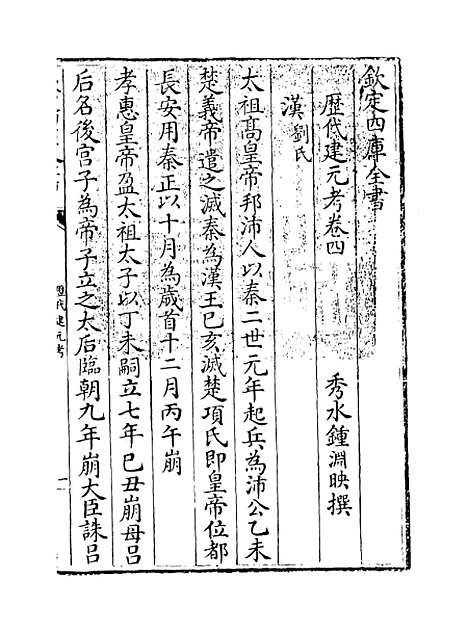 欽定四庫全書
歴代建元考卷四
秀水鍾淵映撰
漢劉氏
太祖高皇帝邦沛人以秦二世元年起兵為沛公乙未
楚義帝遣之滅秦為漢王己亥滅楚項氏即皇帝位都
長安用秦正以十月為歲首十二月丙午崩
孝惠皇帝盈太祖太子以丁未嗣立七年己丑崩母吕
后名後宫子為帝子立之太后臨朝九年崩大臣誅吕
歴代建元考
一